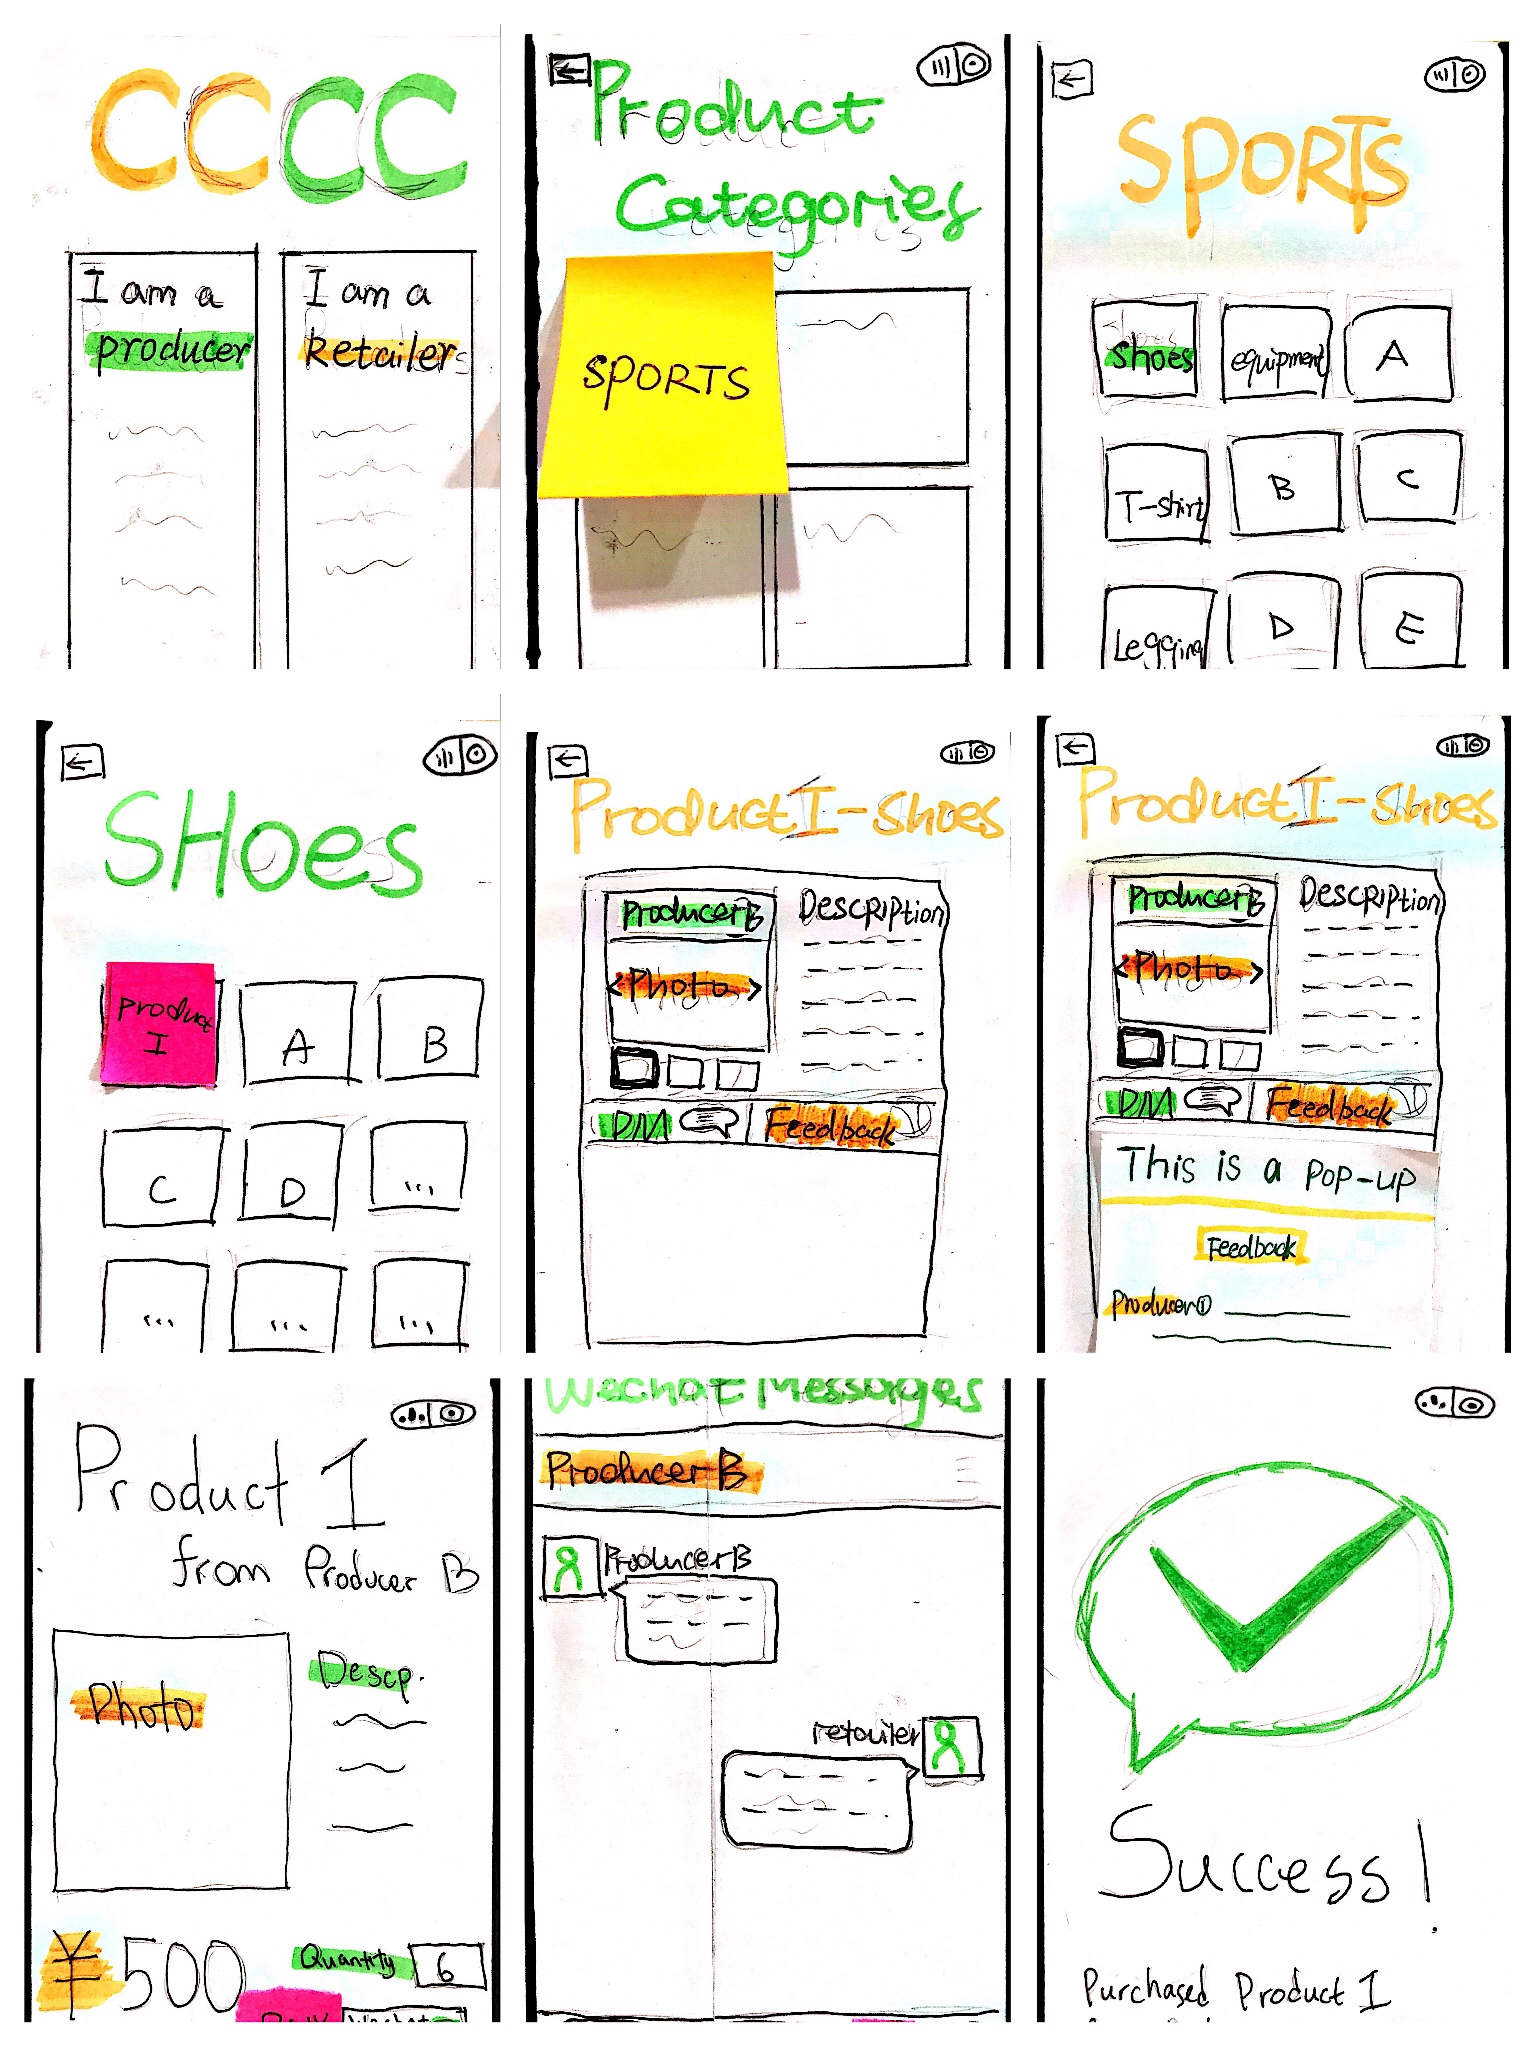 CCCC
I am a
producer
I am a
Retailer
Product
Categories
SPORTS
SPORTS
Shoes
equipment
A
T-shirt
B
C
Legging
D
E
SHoes
Product
I
A
B
C
D
...
...
...
...
Product I - Shoes
Producer B
Description
< Photo >
DM
Feedback
Product I - Shoes
Producer B
Description
< Photo >
DM
Feedback
This is a POP-UP
Feedback
Producer①
Product 1
from Producer B
Photo
Descp.
¥500
Quantity
6
Wechat Messages
Producer B
Producer B
retailer
Success!
Purchased Product 1